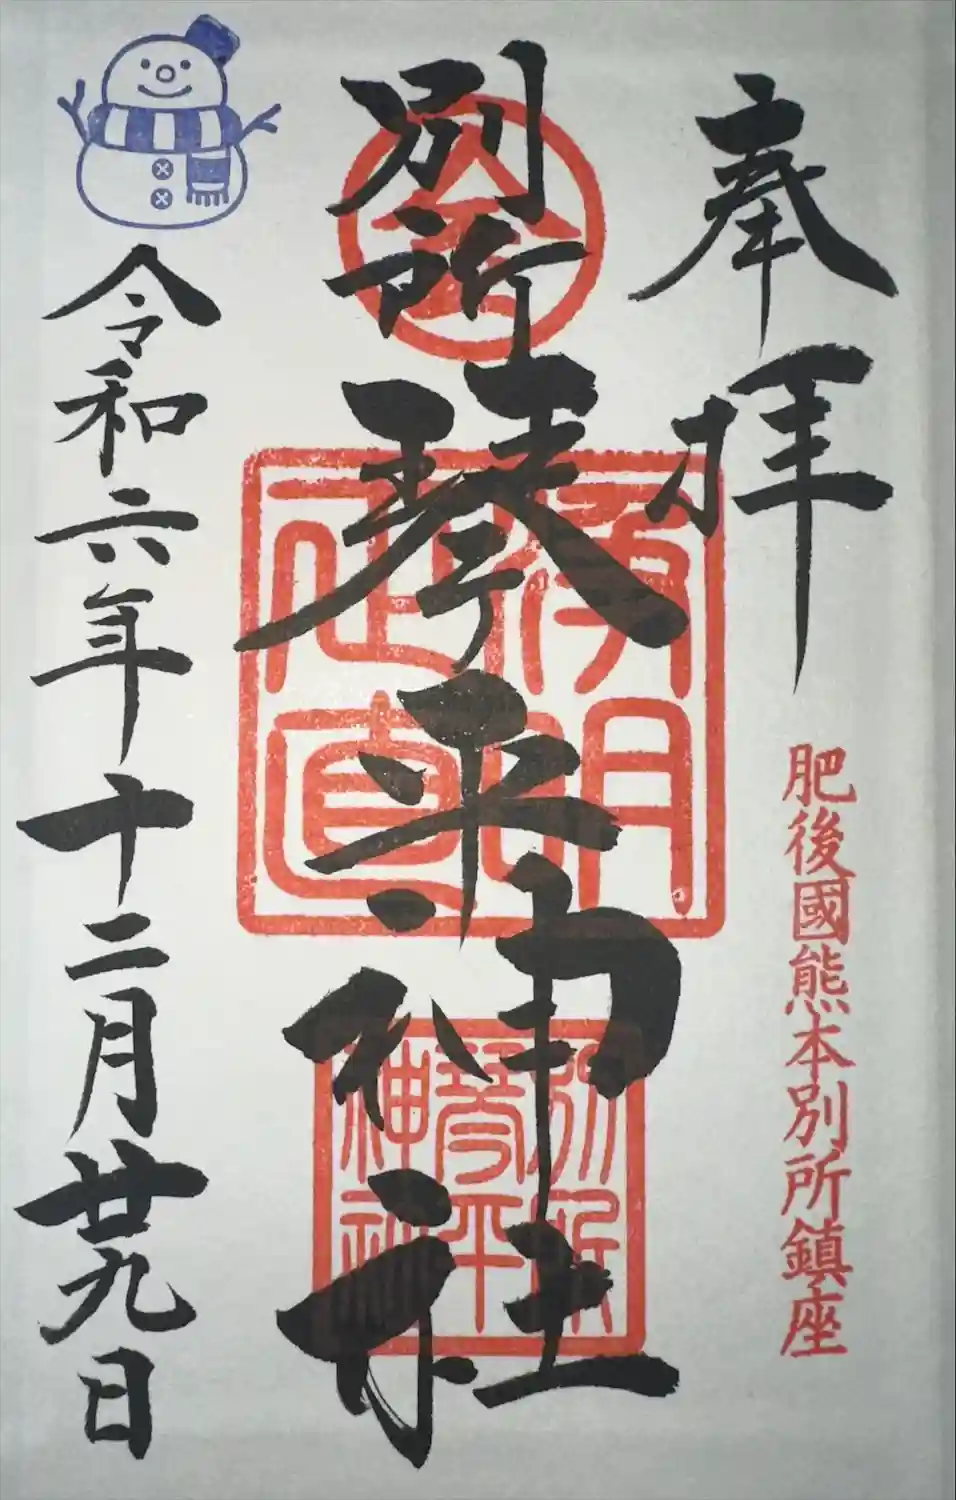 奉拝
肥後國熊本別所鎮座
別所琴平神社
浄明
正直
別所
琴平
神社
令和六年十二月廿九日